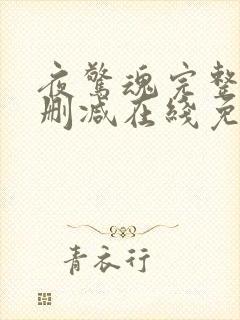 夜驚魂完整
刪減在綫免
青衣行